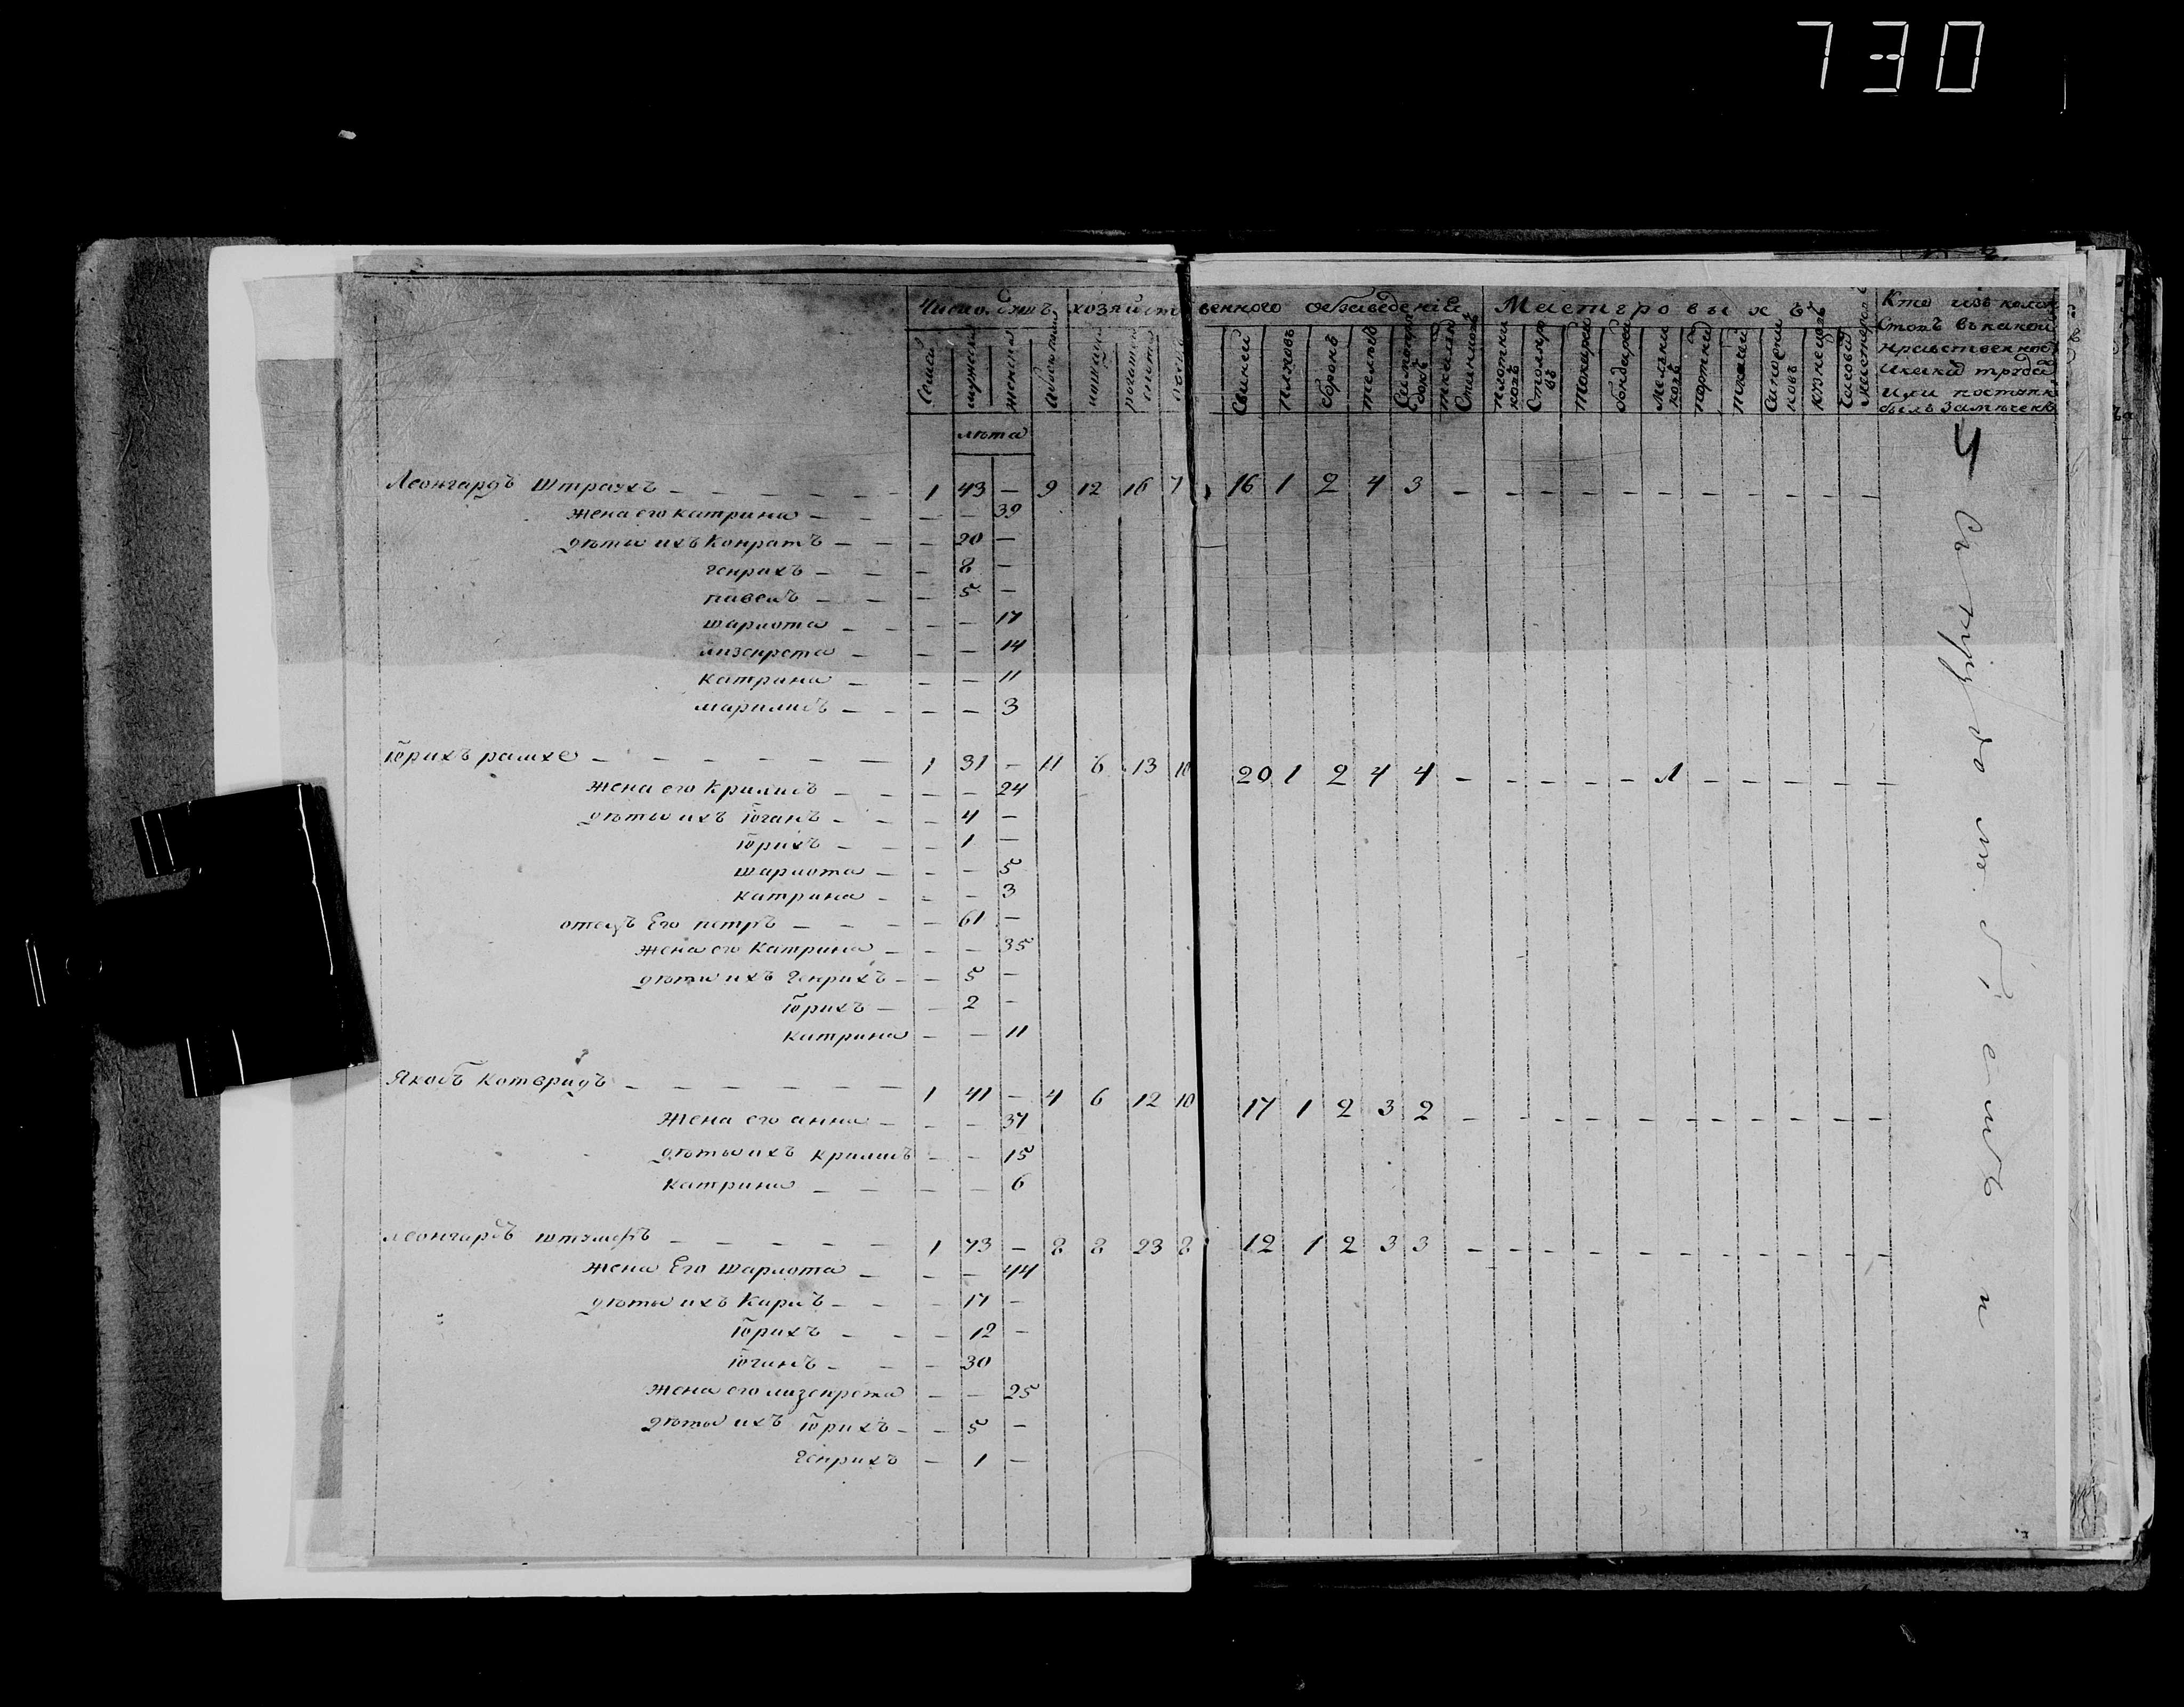 730
Число Душъ хозяйственного обзаведенія Мастеровыхъ Кто изъ колонистовъ въ какой нравственности и какой трудъ или поступкъ былъ замѣченъ
Семей мужеска женска лошадей рогатаго скота овецъ Свиней плуховъ боронъ телегъ Самопрялокъ ткальныхъ Становъ плотниковъ Столяровъ токарей бондарей Мельниковъ портныхъ ткачей Сапожниковъ кузнецовъ Часовой мастеровъ
лѣта
Леонгардъ Штраухъ — — — — — — 1 43 — 9 12 16 7 16 1 2 4 3 — — — — — — — — — — —
жена его катрина — — — — 39
дѣти ихъ Конратъ — — — 20 —
генрихъ — — — 8 —
павелъ — — — 5 —
шарлота — — — — 17
лизенрета — — — 14
катрина — — — 11
марилисъ — — — — 3
Юрихъ рамхе — — — — — — 1 31 — 11 8 13 10 20 1 2 4 4 — — — — — 1 — — — — —
жена его Крилисъ — — — — 24
дѣти ихъ Юганъ — — — 4 —
Юрихъ — — — 1 —
шарлота — — — 5
катрина — — — 3
отецъ Его петръ — — — — 61 —
жена его Катрина — — — 35
дѣти ихъ Генрихъ — — 5 —
Юрихъ — — 2 —
катрина — — 11
Якобъ Котфридъ — — — — — — 1 41 — 4 6 12 10 17 1 2 3 2 — — — — — — — — — — —
жена его анна — — — 37
дѣти ихъ крилисъ — — 15
катрина — — — — 6
леонгардъ — — — — — — 1 73 — 8 8 23 8 12 1 2 3 3 — — — — — — — — — — —
жена Его шарлота — — — 44
дѣти ихъ Карлъ — — — 17 —
Юрихъ — — — 12 —
Юганъ — — — 30
жена его лизенрета — — 25
дѣти ихъ Юрихъ — — 5 —
Генрихъ — 1 —